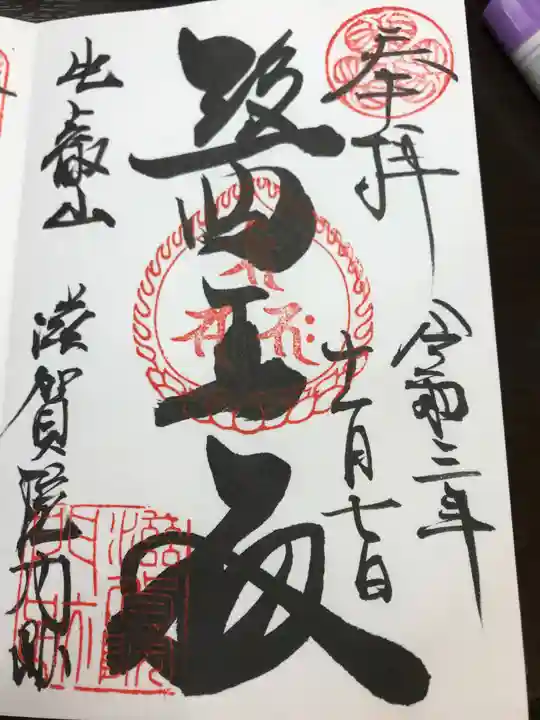 奉拝
令和三年
十一月七日
醫王殿
比叡山
滋賀院門跡